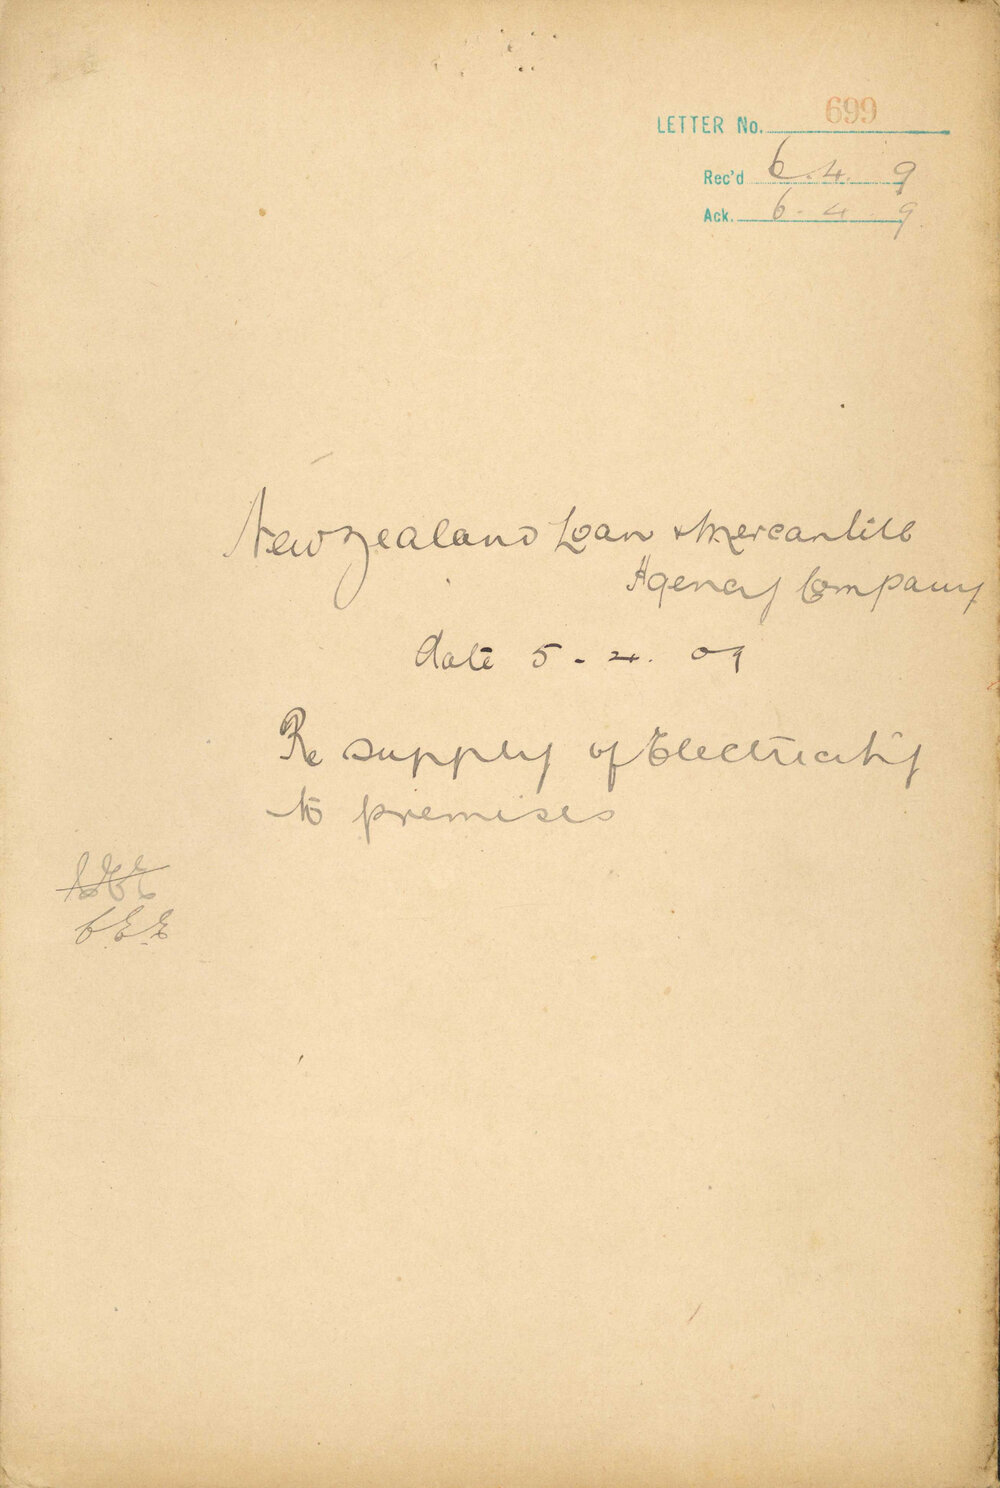 LETTER No. 699
Rec'd 6.4.9
Ack. 6-4-9
New Zealand Loan & Mercantile
Agency Company
date 5-4.09
Re supply of Electricity
to premises
CEE